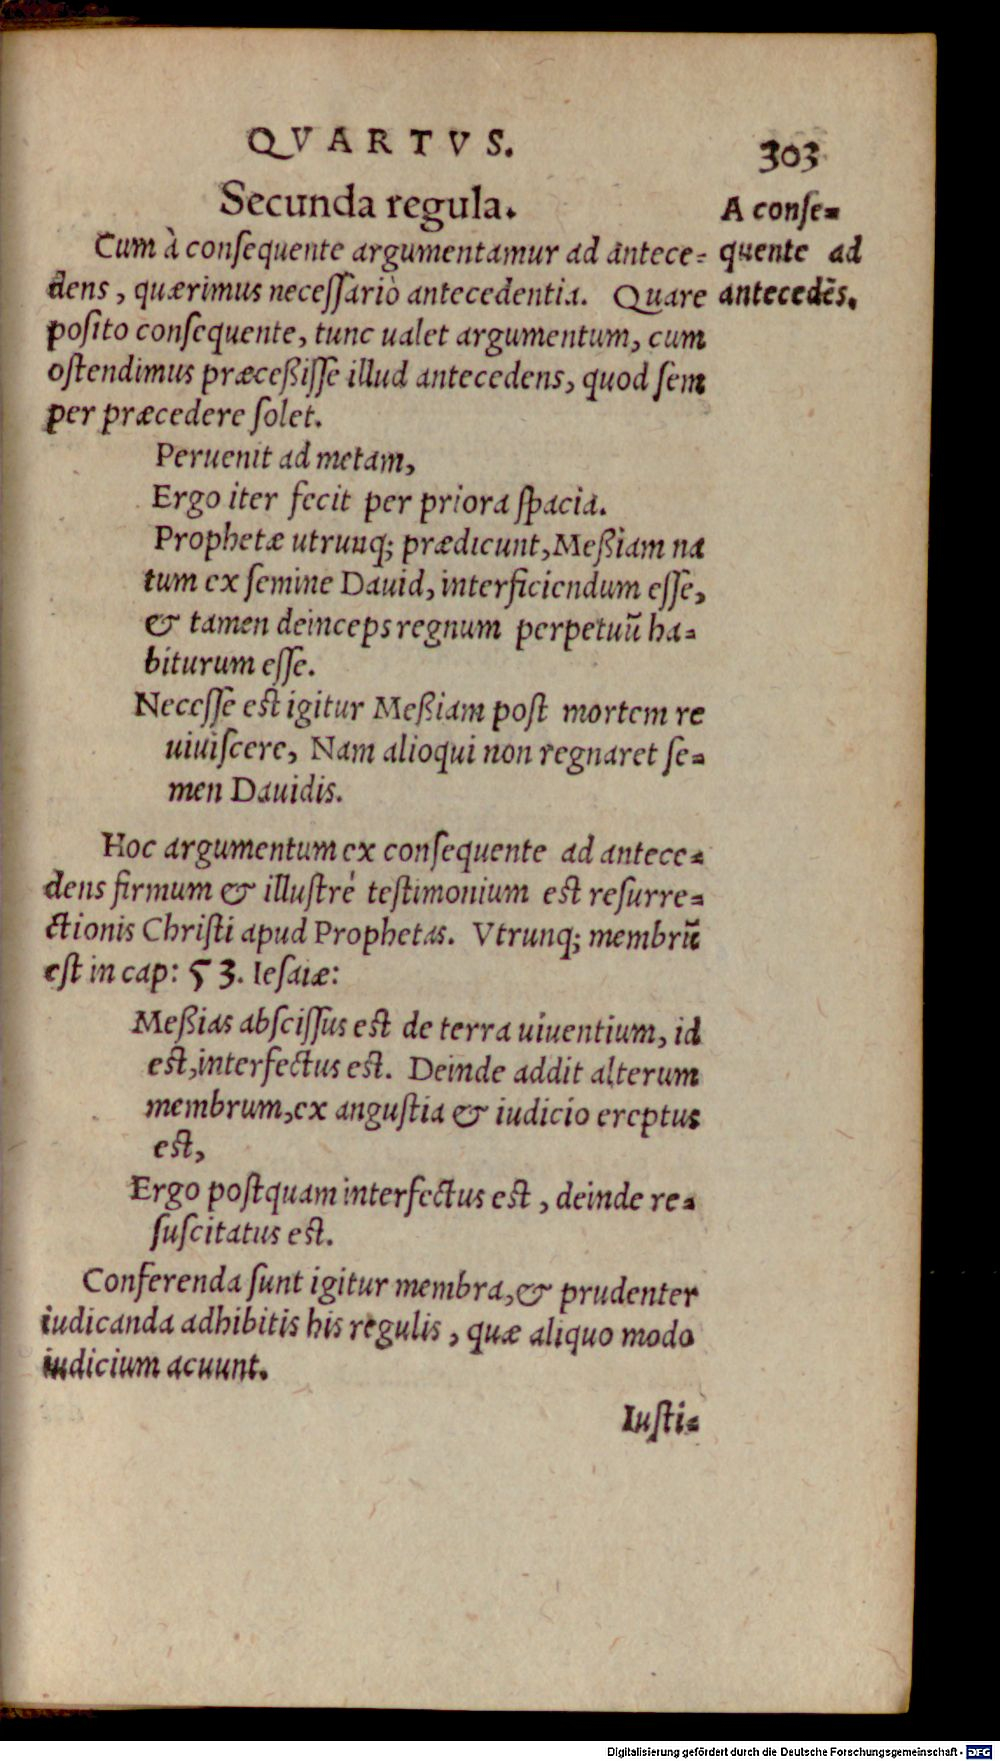 QVARTVS.
303
Secunda regula.
Cum à conſequente argumentamur ad antece-
dens, quærimus neceſſariò antecedentia. Quare
poſito conſequente, tunc ualet argumentum, cum
oſtendimus præceßiſſe illud antecedens, quod ſem
per præcedere ſolet.
A conſe-
quente ad
antecedẽs.
Peruenit ad metam,
Ergo iter fecit per priora ſpacia.
Prophetæ utrunq; prædicunt, Meßiam na
tum ex ſemine Dauid, interficiendum eſſe,
& tamen deinceps regnum perpetuũ ha-
biturum eſſe.
Neceſſe eſt igitur Meßiam poſt mortem re
uiuiſcere, Nam alioqui non regnaret ſe-
men Dauidis.
Hoc argumentum ex conſequente ad antece-
dens firmum & illuſtré teſtimonium eſt reſurre-
ctionis Chriſti apud Prophetas. Vtrunq; membrũ
eſt in cap: 53. Ieſaiæ:
Meßias abſciſſus eſt de terra uiuentium, id
eſt, interfectus eſt. Deinde addit alterum
membrum, ex anguſtia & iudicio ereptus
eſt,
Ergo poſtquam interfectus eſt, deinde re-
ſuſcitatus eſt.
Conferenda ſunt igitur membra, & prudenter
iudicanda adhibitis his regulis, quæ aliquo modo
iudicium acuunt.
Iuſti-
Digitalisierung gefördert durch die Deutsche Forschungsgemeinschaft - DFG